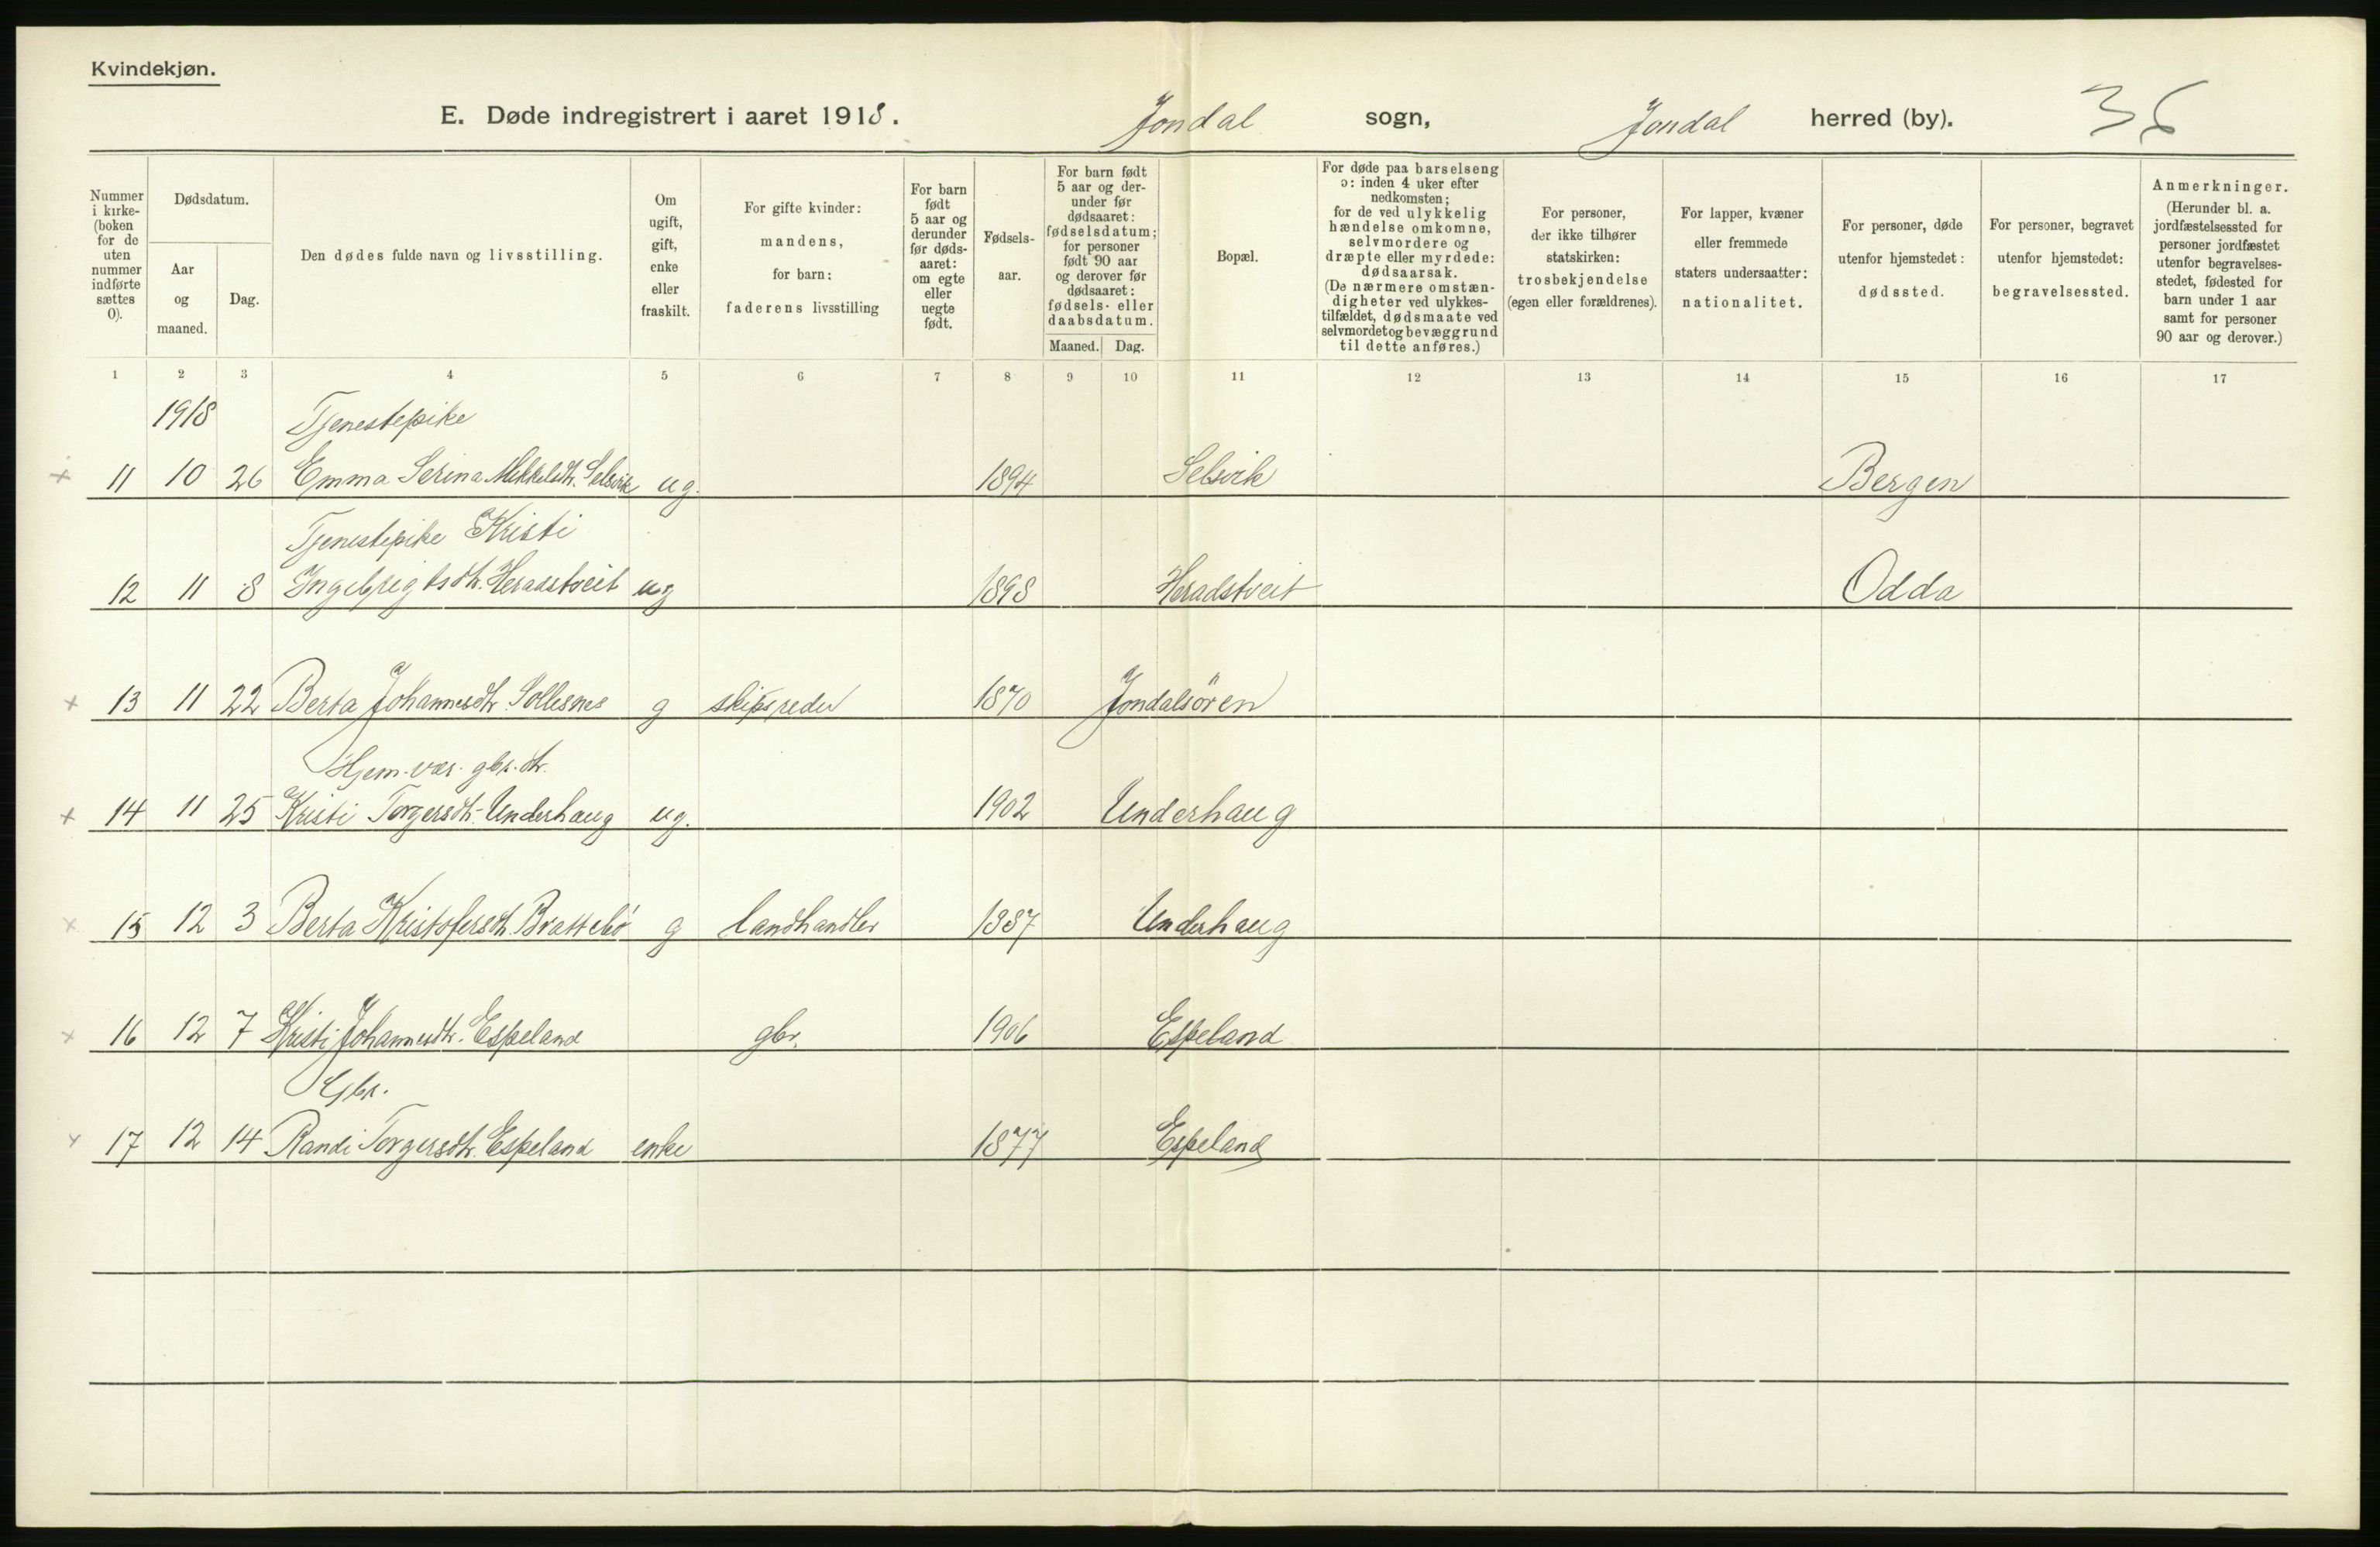 Kvindekjøn.
E. Døde indregistrert i aaret 1918. Jondal sogn, Jondal herred (by). 36
Nummer i kirkeboken for de uten nummer indførte sættes 0).
Dødsdatum.
Aar og maaned.
Dag.
Den dødes fulde navn og livsstilling.
Om ugift, gift, enke eller fraskilt.
For gifte kvinder: mandens, for barn: faderens livsstilling
For barn født 5 aar og derunder før dødsaaret: om egte eller uegte født.
Fødselsaar.
For barn født 5 aar og derunder før dødsaaret: fødselsdatum; for personer født 90 aar og derover før dødsaaret: fødsels- eller daabsdatum.
Maaned. Dag.
Bopæl.
For døde paa barselseng ɔ: inden 4 uker efter nedkomsten; for de ved ulykkelig hændelse omkomne, selvmordere og dræpte eller myrdede: dødsaarsak. (De nærmere omstændigheter ved ulykkestilfældet, dødsmaate ved selvmordet og bevæggrund til dette anføres.)
For personer, der ikke tilhører statskirken: trosbekjendelse (egen eller forældrenes).
For lapper, kvæner eller fremmede staters undersaatter: nationalitet.
For personer, døde utenfor hjemstedet: dødssted.
For personer, begravet utenfor hjemstedet: begravelsessted.
Anmerkninger. (Herunder bl. a. jordfæstelsessted for personer jordfæstet utenfor begravelsesstedet, fødested for barn under 1 aar samt for personer 90 aar og derover.)
1 2 3 4 5 6 7 8 9 10 11 12 13 14 15 16 17
1918 Tjenestepike
11 10 26 Emma Serina Mikkelsdtr. Selsvik ug. 1894 Selsvik Bergen
Tjenestepike Kristi
12 11 8 Ingebrigtsdtr. Heradstveit ug 1898 Heradstveit Odda
13 11 22 Berta Johannesdtr. Sollesnes g skipsreder 1870 Jondalsören
Hjem. vær. gbr. dtr.
14 11 25 Kristi Torgersdtr. Underhaug ug. 1902 Underhaug
15 12 3 Berta Kristofersdtr. Brattebö g landhandler 1887 Underhaug
16 12 7 Kristi Johannesdtr. Espeland gbr. 1906 Espeland
Gbr.
17 12 14 Randi Torgersdtr. Espeland enke 1877 Espeland